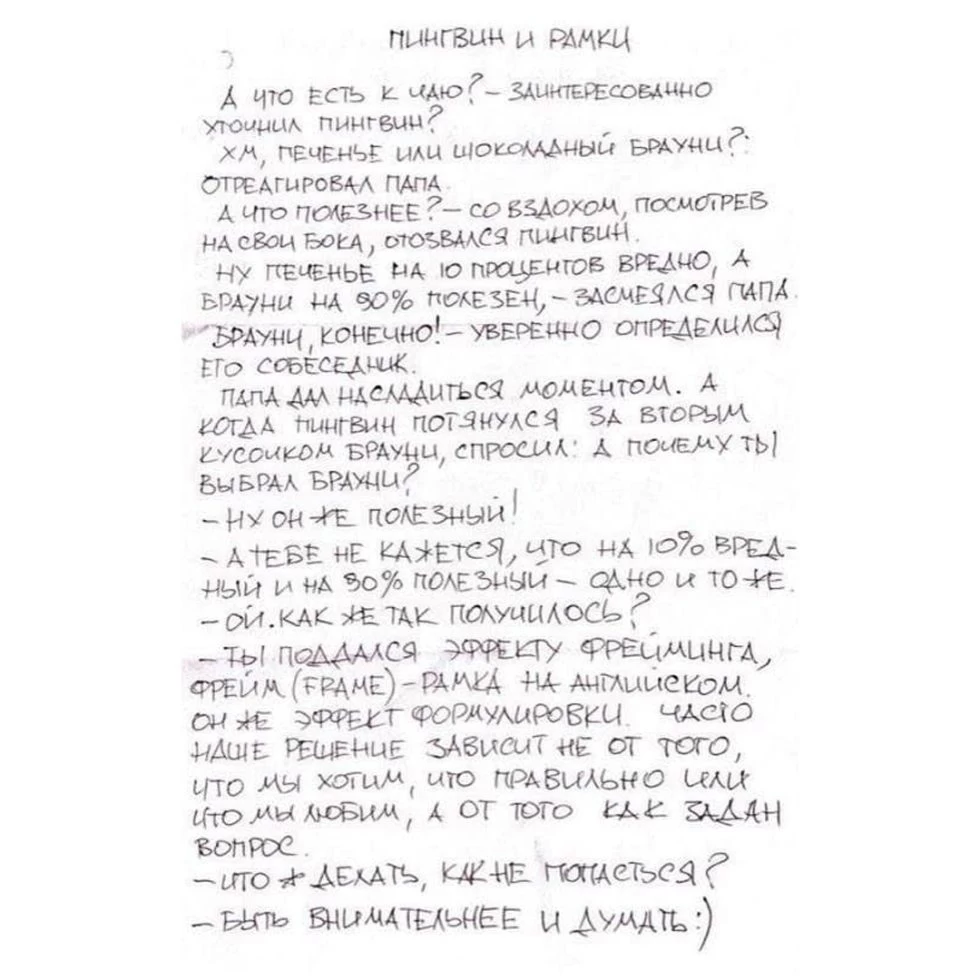 ПИНГВИН И РАМКИ
А ЧТО ЕСТЬ К ЧАЮ? – ЗАИНТЕРЕСОВАННО
УТОЧНИЛ ПИНГВИН?
ХМ, ПЕЧЕНЬЕ ИЛИ ШОКОЛАДНЫЙ БРАУНИ?:
ОТРЕАГИРОВАЛ ПАПА.
А ЧТО ПОЛЕЗНЕЕ? – СО ВЗДОХОМ, ПОСМОТРЕВ
НА СВОИ БОКА, ОТОЗВАЛСЯ ПИНГВИН.
НУ ПЕЧЕНЬЕ НА 10 ПРОЦЕНТОВ ВРЕДНО, А
БРАУНИ НА 90% ПОЛЕЗЕН, – ЗАСМЕЯЛСЯ ПАПА.
БРАУНИ, КОНЕЧНО! – УВЕРЕННО ОПРЕДЕЛИЛСЯ
ЕГО СОБЕСЕДНИК.
ПАПА ДАЛ НАСЛАДИТЬСЯ МОМЕНТОМ. А
КОГДА ПИНГВИН ПОТЯНУЛСЯ ЗА ВТОРЫМ
КУСОЧКОМ БРАУНИ, СПРОСИЛ: А ПОЧЕМУ ТЫ
ВЫБРАЛ БРАУНИ?
– НУ ОН ЖЕ ПОЛЕЗНЫЙ!
– А ТЕБЕ НЕ КАЖЕТСЯ, ЧТО НА 10% ВРЕД-
НЫЙ И НА 90% ПОЛЕЗНЫЙ – ОДНО И ТО ЖЕ.
– ОЙ. КАК ЖЕ ТАК ПОЛУЧИЛОСЬ?
– ТЫ ПОДДАЛСЯ ЭФФЕКТУ ФРЕЙМИНГА,
ФРЕЙМ (FRAME) – РАМКА НА АНГЛИЙСКОМ.
ОН ЖЕ ЭФФЕКТ ФОРМУЛИРОВКИ. ЧАСТО
НАШЕ РЕШЕНИЕ ЗАВИСИТ НЕ ОТ ТОГО,
ЧТО МЫ ХОТИМ, ЧТО ПРАВИЛЬНО ИЛИ
ЧТО МЫ ЛЮБИМ, А ОТ ТОГО КАК ЗАДАН
ВОПРОС.
– ЧТО Ж ДЕЛАТЬ, КАК НЕ ПОПАСТЬСЯ?
– БЫТЬ ВНИМАТЕЛЬНЕЕ И ДУМАТЬ :)